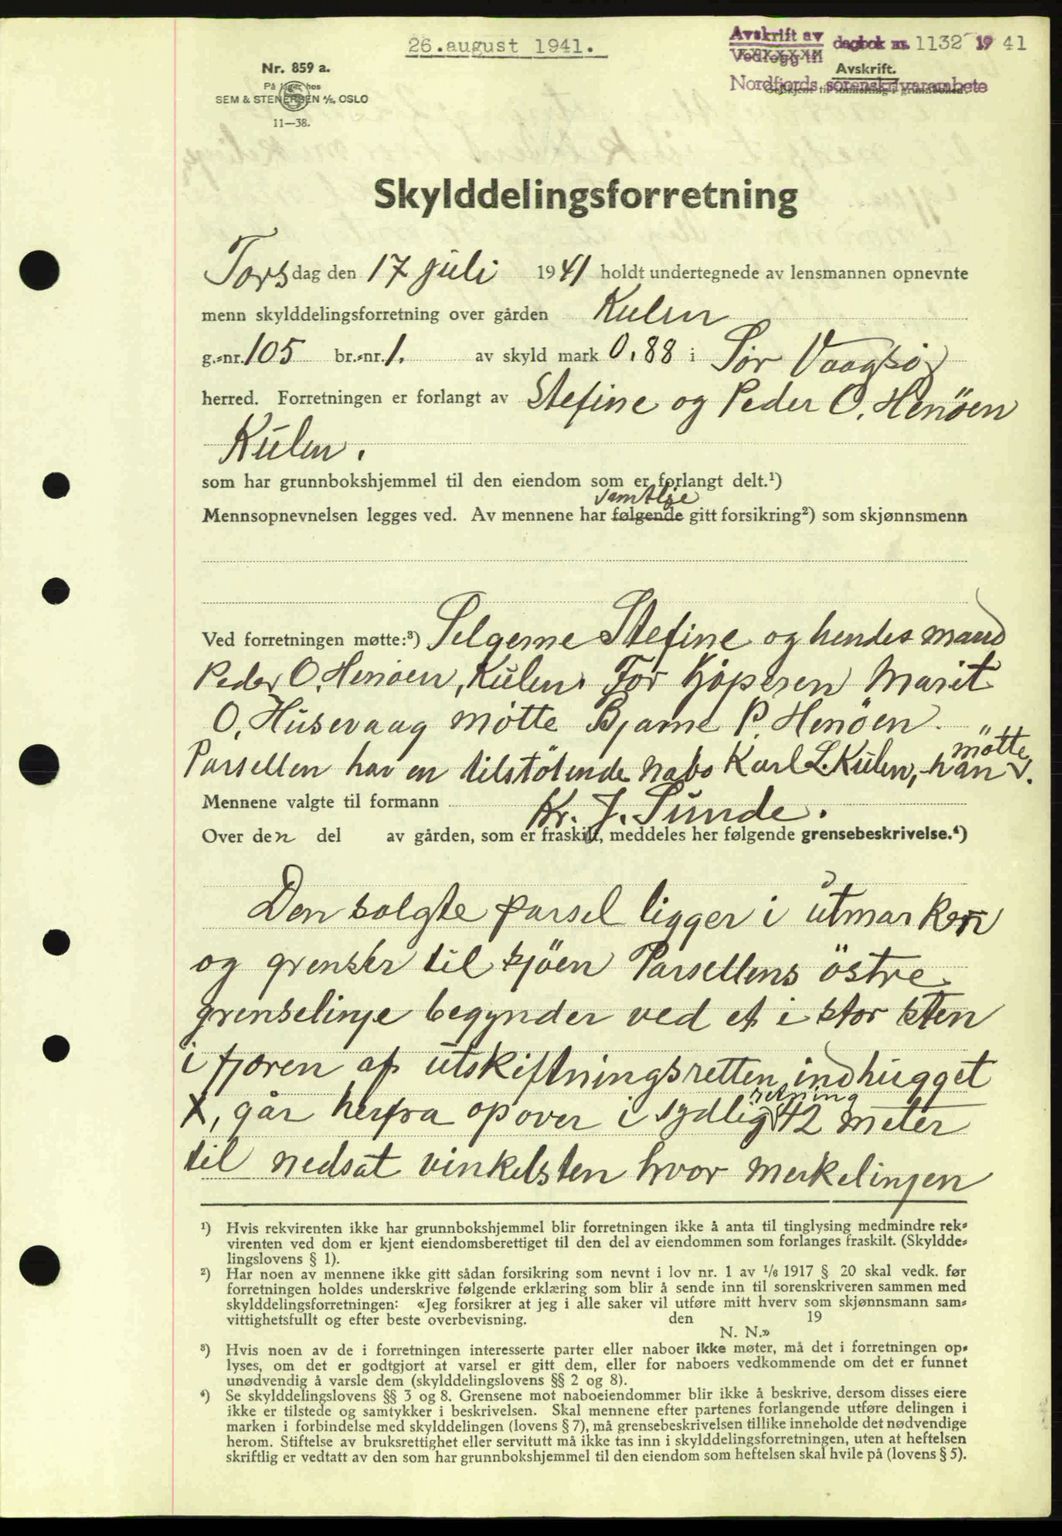 26.august 1941.
Avskrift av dagbok nr. 1132 1941
Vedlegg til
Avskrift.
Nordfjords sorenskrivarembete
Nr. 859 a.
På lager hos
SEM & STENERSEN A/S, OSLO
11—38.
Skylddelingsforretning
Torsdag den 17 juli 1941 holdt undertegnede av lensmannen opnevnte
menn skylddelingsforretning over gården Kulen
g.-nr. 105 br.-nr. 1. av skyld mark 0.88 i Sør Vaagsøy
herred. Forretningen er forlangt av Stefine og Peder O. Henöen
Kulen.
som har grunnbokshjemmel til den eiendom som er forlangt delt.¹)
samtlige
Mennsopnevnelsen legges ved. Av mennene har følgende gitt forsikring²) som skjønnsmenn
Ved forretningen møtte:³) Selgerne Stefine og hendes mand
Peder O. Henöen, Kulen. For Kjöperen Marit
O. Husevaag mötte Bjarne P. Henöen.
Parsellen har en tilstötende nabo Karl L. Kulen, han mötte.
Mennene valgte til formann Kr. J. Sunde.
Over den del av gården, som er fraskilt, meddeles her følgende grensebeskrivelse.⁴)
Den solgte parsel ligger i utmarken
og grenser til sjöen Parsellens östre
grenselinje begynder ved et i stor sten
i fjæren af utskiftningsretten indhugget
X, går herfra opover i sydlig retning 42 meter
til nedsat vinkelsten hvor merkelinjen
¹) Hvis rekvirenten ikke har grunnbokshjemmel blir forretningen ikke å anta til tinglysing medmindre rek-
virenten ved dom er kjent eiendomsberettiget til den del av eiendommen som forlanges fraskilt. (Skyldde-
lingslovens § 1).
²) Har noen av mennene ikke gitt sådan forsikring som nevnt i lov nr. 1 av 1/6 1917 § 20 skal vedk. før
forretningen holdes underskrive følgende erklæring som blir å sende inn til sorenskriveren sammen med
skylddelingsforretningen: «Jeg forsikrer at jeg i alle saker vil utføre mitt hverv som skjønnsmann sam-
vittighetsfullt og efter beste overbevisning. den 19
N. N.»
³) Hvis noen av de i forretningen interesserte parter eller naboer ikke møter, må det i forretningen op-
lyses, om det er godtgjort at varsel er gitt dem, eller for naboers vedkommende om det er funnet
unødvendig å varsle dem (skylddelingslovens §§ 2 og 8).
⁴) Se skylddelingslovens §§ 3 og 8. Grensene mot naboeiendommer blir ikke å beskrive, dersom disses eiere
ikke er tilstede og samtykker i beskrivelsen. Skal mennene efter partenes forlangende utføre delingen i
marken i forbindelse med skylddelingen (lovens § 7), må grensebeskrivelsen tillike inneholde det nødvendige
herom. Stiftelse av bruksrettighet eller servitutt må ikke tas inn i skylddelingsforretningen, uten at heftelsen
skriftlig er vedtatt av den som har grunnbokshjemmel til den eiendom som heftelsen skal hvile på (lovens § 5).